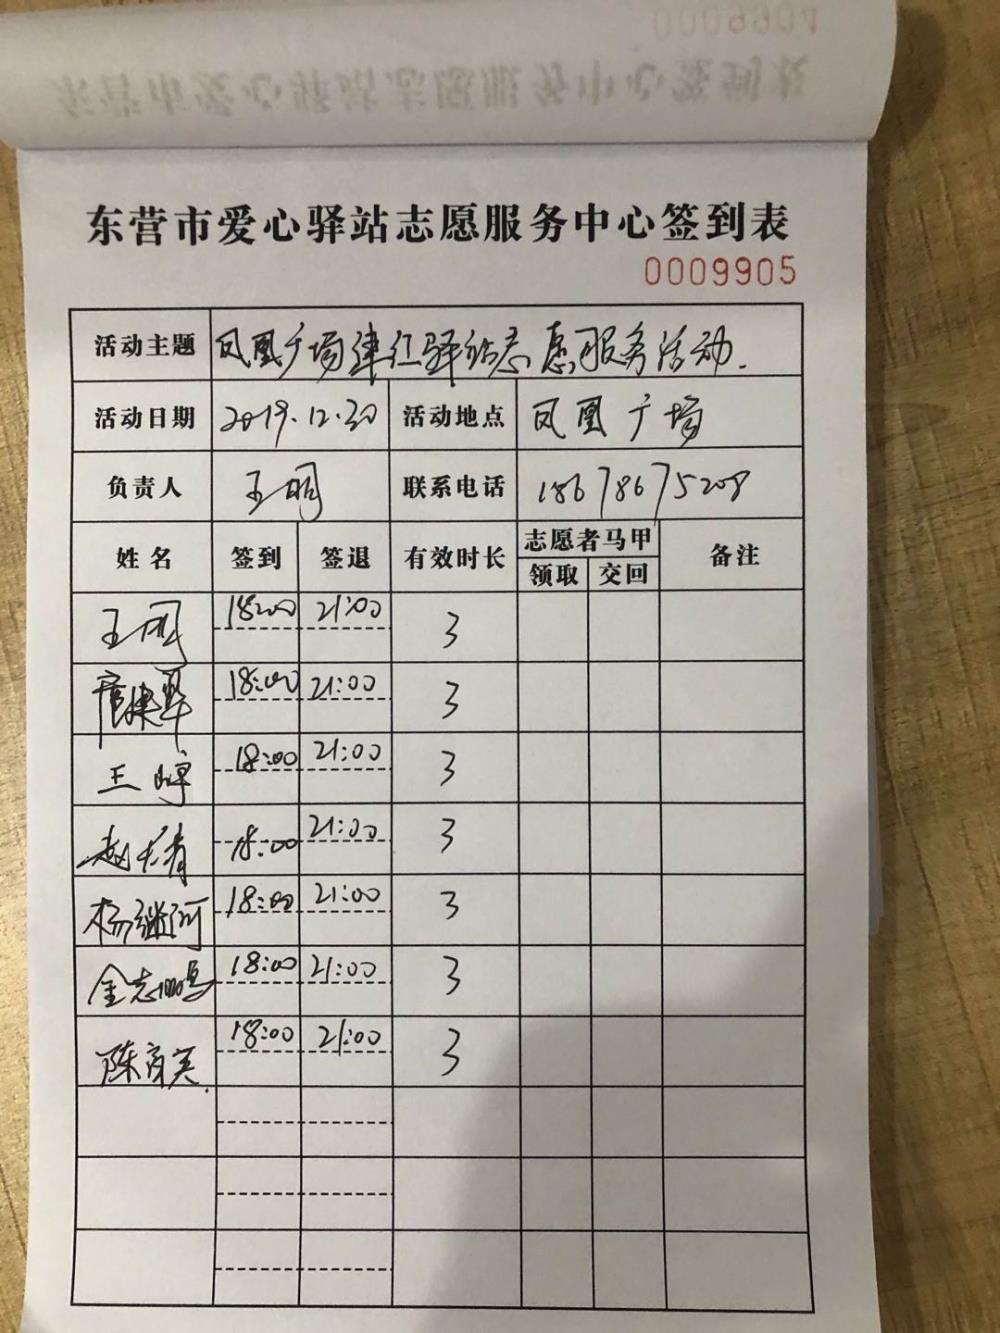 0009904
东营市爱心驿站志愿服务中心签到表
东营市爱心驿站志愿服务中心签到表
0009905
活动主题 凤凰广场建红驿站志愿服务活动.
活动日期 2019.12.30 活动地点 凤凰广场
负责人 王明 联系电话 18678675208
姓名 签到 签退 有效时长 志愿者马甲 备注
领取 交回
王明 18:00 21:00 3
18:00 21:00 3
王峥 18:00 21:00 3
赵 18:00 21:00 3
杨继河 18:00 21:00 3
金志鹏 18:00 21:00 3
陈育英. 18:00 21:00 3